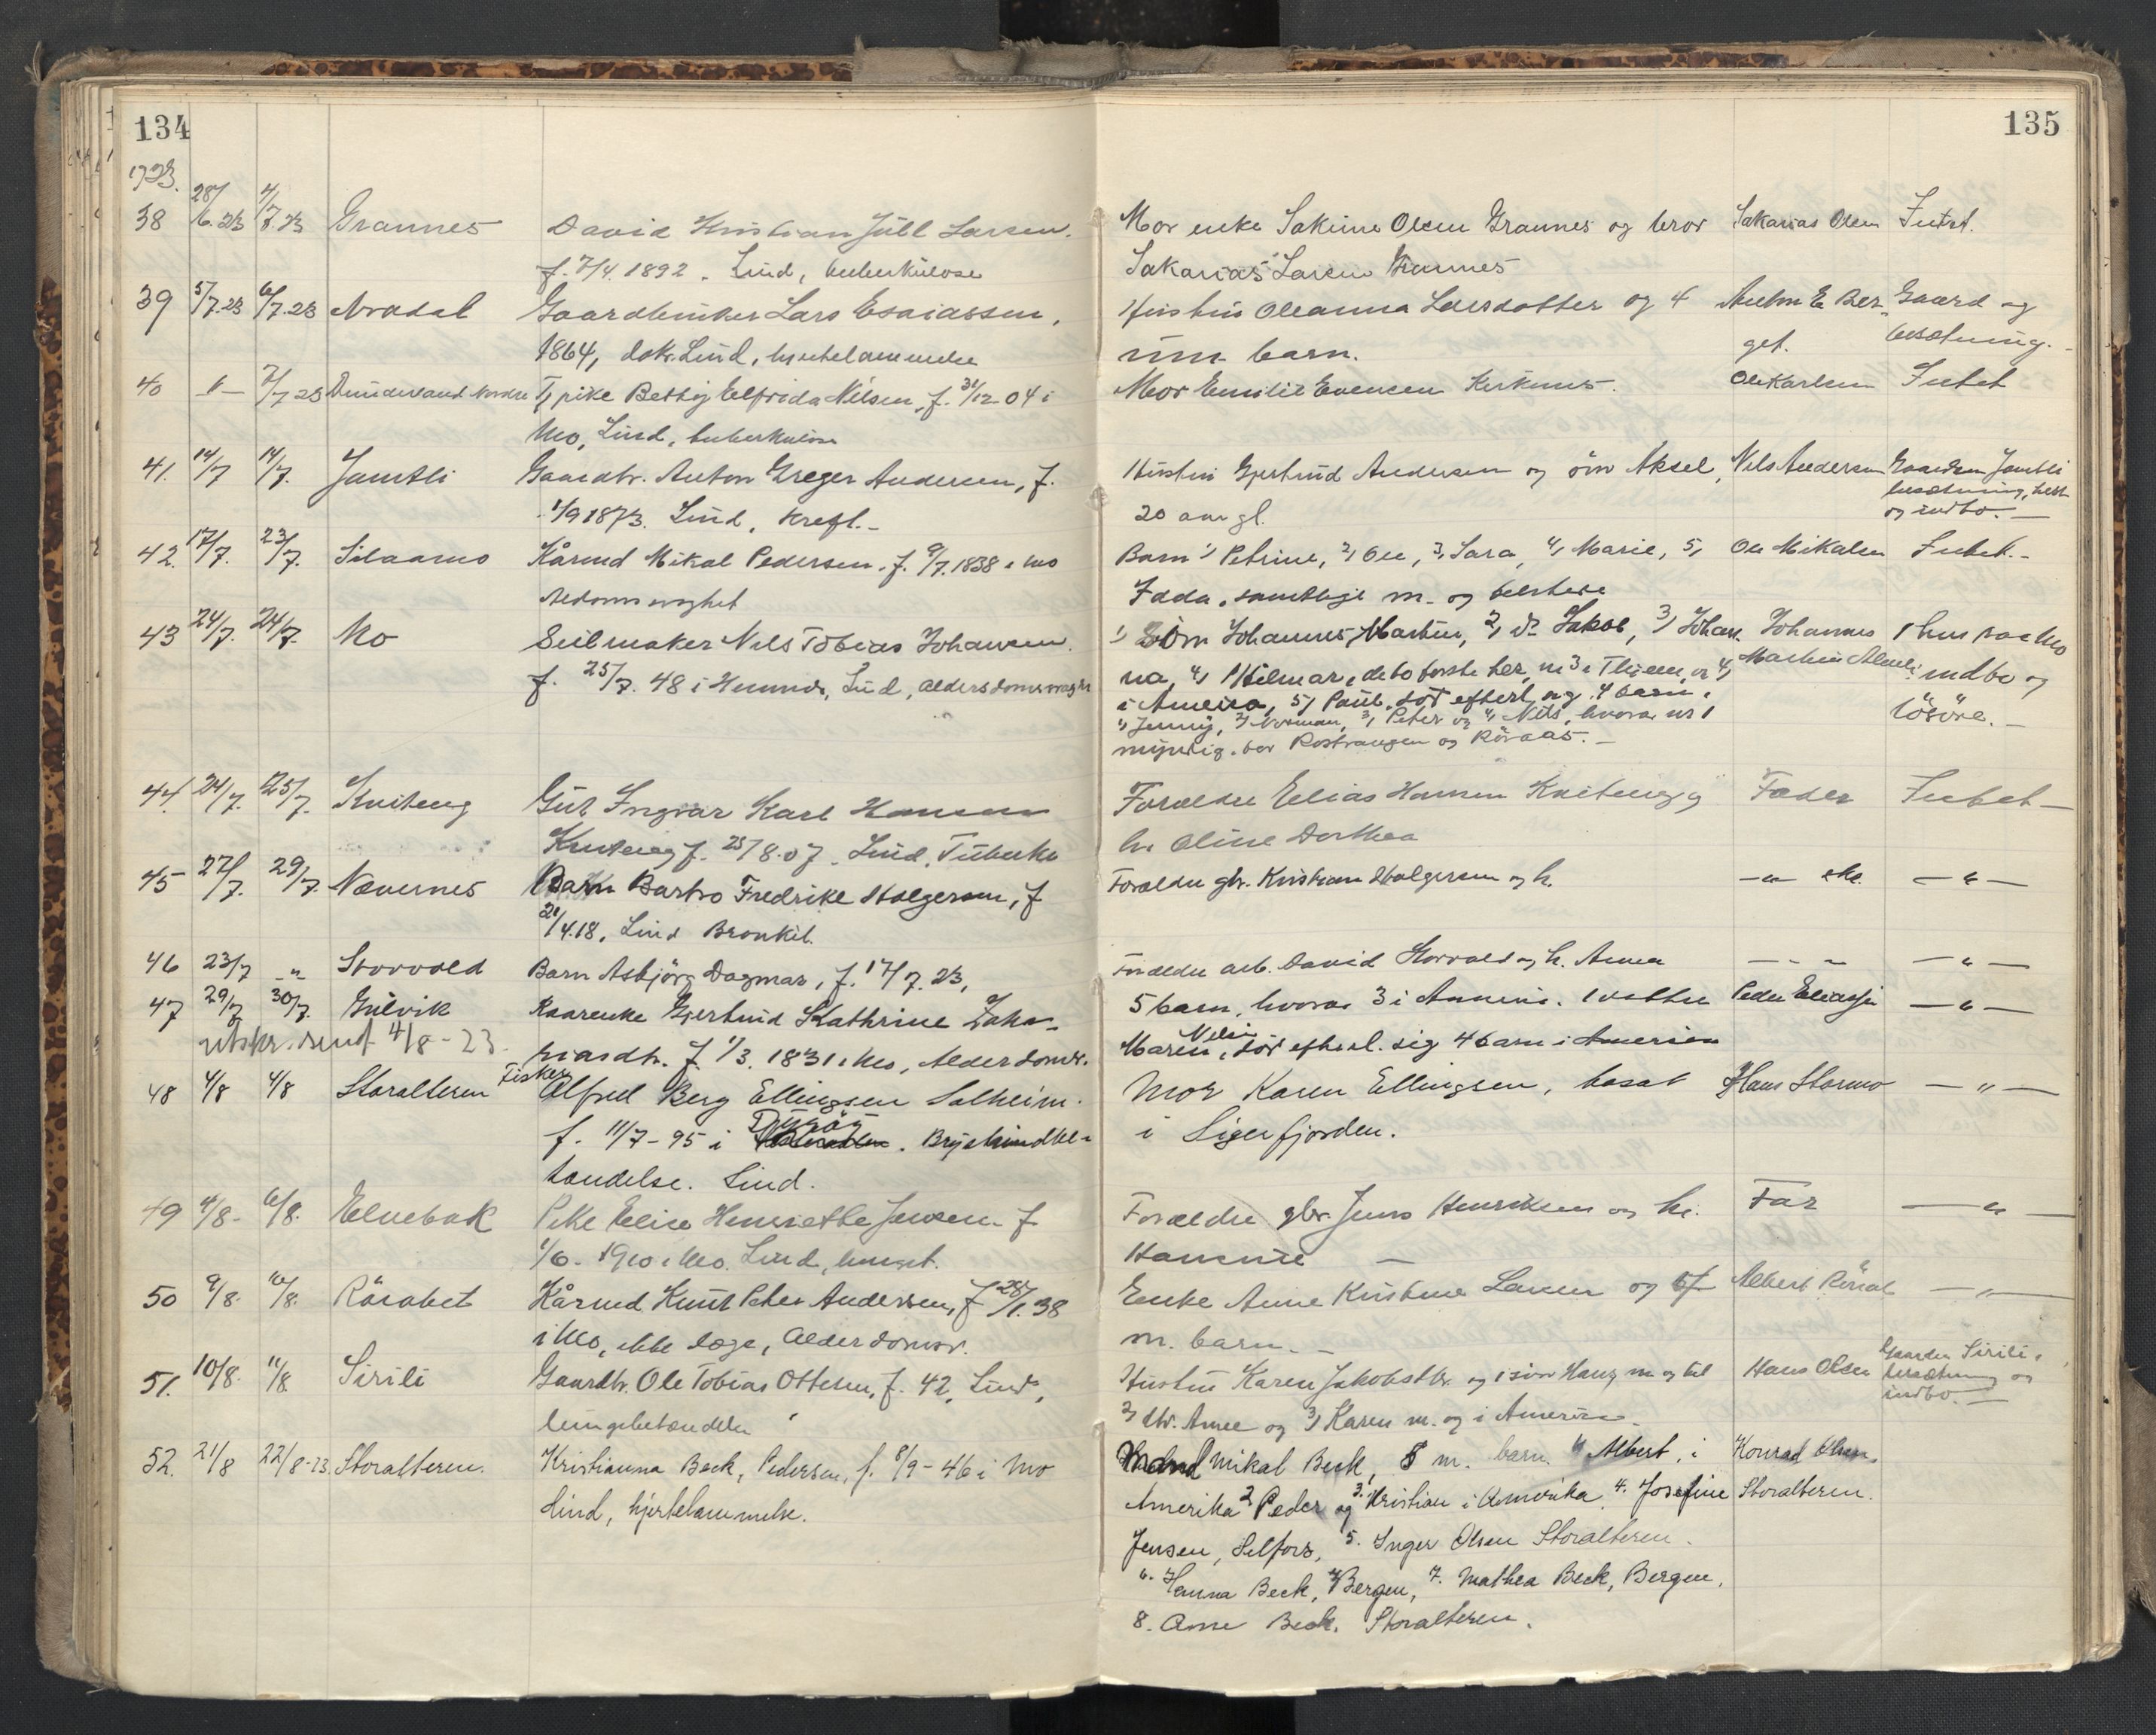 134
135
1923.
38 28/6.23 4/7.23 Grannes David Kristian Júll Larsen. Mor enke Sakrine Olsen Grannes og bror Sakarias Olsen Intet.
f. 7/4. 1892. Lind, tuberkulose Sakarias Larsen Grannes
39 5/7.23 6/7.23 Gaardbruker Lars Esaiassen, Hustru Oleanna Larsdotter og 4 Anton E. Ber- Gaard og
1864, dokt. Lind, hjertelammelse um. barn. get. besætning.
40 -"- 7/7 23 Dunderland Nordre Tj pike Betsy Elfrida Nilsen, f. 31/12 04 i Mor Emilie Evensen Ole Karlsen Intet
Mo, Lind, tuberkulose
41. 14/7 14/7. Jamtli Gaardbr. Anton Greger Andersen, f. Hustru Gjertrud Andersen og sön Aksel, Nils Andersen Gaarden Jamtli
1/9 1873. Lind, Kreft.- 20 aar gl. besætning, hest
og indbo. -
42. 17/7. 23/7. Kårmd Mikal Pedersen. f. 9/7. 1838 i Mo Barn 1, Petrine, 2, Ole, 3, Sara, 4, Marie, 5, Ole Mikalsen Intet.-
samtlige m. og
43 24/7. 24/7. Mo Seilmaker Nils Tobias Johansen. 1, Sön Johannes Martin, 2, do Jakob, 3, Johan- Johannes 1 hus paa Mo
f. 25/7. 48 i Hemnes, Lind, alderdomssvagh na, 4, Hilmar, de to förste her, nr 3 i og 4, Martin indbo og
i Amerika, 5, Paul, död efterl. sig 4 barn: lösöre. -
1, Jenny, 2, Norman, 3, Peter og 4, Nils, hvorav nr 1
myndig. bor og Röraas. -
44. 24/7. 25/7. Kviteng Gut Ingvar Karl Hansen Forældre Elias Hansen Kviteng og Fader Intet -
Kviteng f. 25/8. 07. Lind, Tuberku h. Oline Dorthea
45 27/7. 29/7. Nævernes Barn Barbro Fredrike Holgersen, f Forældre gbr. Kristian Holgersen og h. -"- -"-
21/4.18, Lind Bronkit.
46 23/7 -"- Storvold Barn Asbjörg Dagmar, f. 17/7. 23, Forældre arb. David Storvold og h. Anna - - - -"-
47 29/7 30/7. Gulvik Kaarenke Gjertrud Kathrine Zaka- 5 barn, hvorav 3 i Amerika. 1 datter Peder Eliassen -"-
utskr. sendt 4/8 - 23. riasdtr. f. 1/3. 1831 i Mo, Alderdomsv. Maren, död efterl. sig 4 barn i Amerika
48 4/8 4/8 Storalteren Fisker Alfred Berg Ellingsen Solheim. Mor Karen Ellingsen, bosat Hans Stormo -"-
f. 11/7 - 95 i Dyröy. Brysthindebe- i Sigerfjorden.
tændelse. Lind.
49 4/8 - 6/8. Elvebak Pike Elise Henriette Jensen f. Forældre gbr. Jens Henriksen og h. Far -"-
1/6 - 1910 i Mo. Lind, Hansine -
50 9/8. 10/8. Kårmd Knut Peter Andersen, f 28/1. 38 Enke Anne Kristine Larsen og Albert -"-
i Mo, ikke læge, Alderdomsv. m. barn. -
51. 10/8. 11/8 Sirili Gaardbr. Ole Tobias Ottesen, f. 42, Lind, Hustru Karen Jakobsdtr. og 1 sön Hans, m. og til Hans Olsen Gaarden Sirili,
lungebetændelse 2, dtr. Anne og 3, Karen m. og i Amerika. besætning og
indbo. -
52. 21/8 22/8 - 23. Storalteren. Kristianna Beck, Pedersen, f. 8/9 - 46 i Mo Mand Mikal Beck, 8 m. barn. 1, Albert, i Konrad Olsen,
Lind, hjertelammelse. Amerika 2, Peder og 3. Kristian i Amerika. 4. Josefine Storalteren.
Jensen, Selfors, 5. Inger Olsen Storalteren.
6. Hanna Beck, Bergen, 7. Mathea Beck, Bergen,
8. Anne Beck. Storalteren.